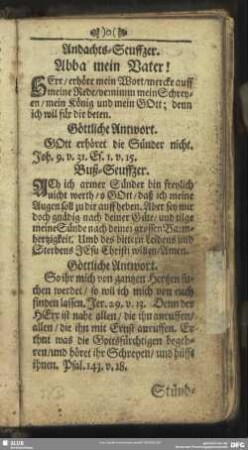 )o(
Andachts-Seuffzer.
Abba mein Vater!
HErr/ erhöre mein Wort/ mercke auff
meine Rede/ vernimm mein Schrey-
en/ mein König und mein GOtt; denn
ich will für dir beten.
Göttliche Antwort.
GOtt erhöret die Sünder nicht.
Joh. 9. v. 31. Es. 1. v. 15.
Buß-Seuffzer.
ACh ich armer Sünder bin freylich
nicht werth/ o GOtt/ daß ich meine
Augen soll zu dir auff heben. Aber sey mir
doch gnädig nach deiner Güte/ und tilge
meine Sünde nach deiner grossen Barm-
hertzigkeit. Umb des bittern Leidens und
Sterbens JEsu Christi willen/ Amen.
Göttliche Antwort.
So ihr mich von gantzen Hertzen su-
chen werdet/ so wil ich mich von euch
finden lassen. Jer. 29. v. 13. Denn der
HErr ist nahe allen/ die ihn anruffen/
allen/ die ihn mit Ernst anruffen. Er
thut was die Gottsfürchtigen begeh-
ren/ und höret ihr Schreyen/ und hilfft
ihnen. Psal. 143. v. 18.
Stünd-
SLUB